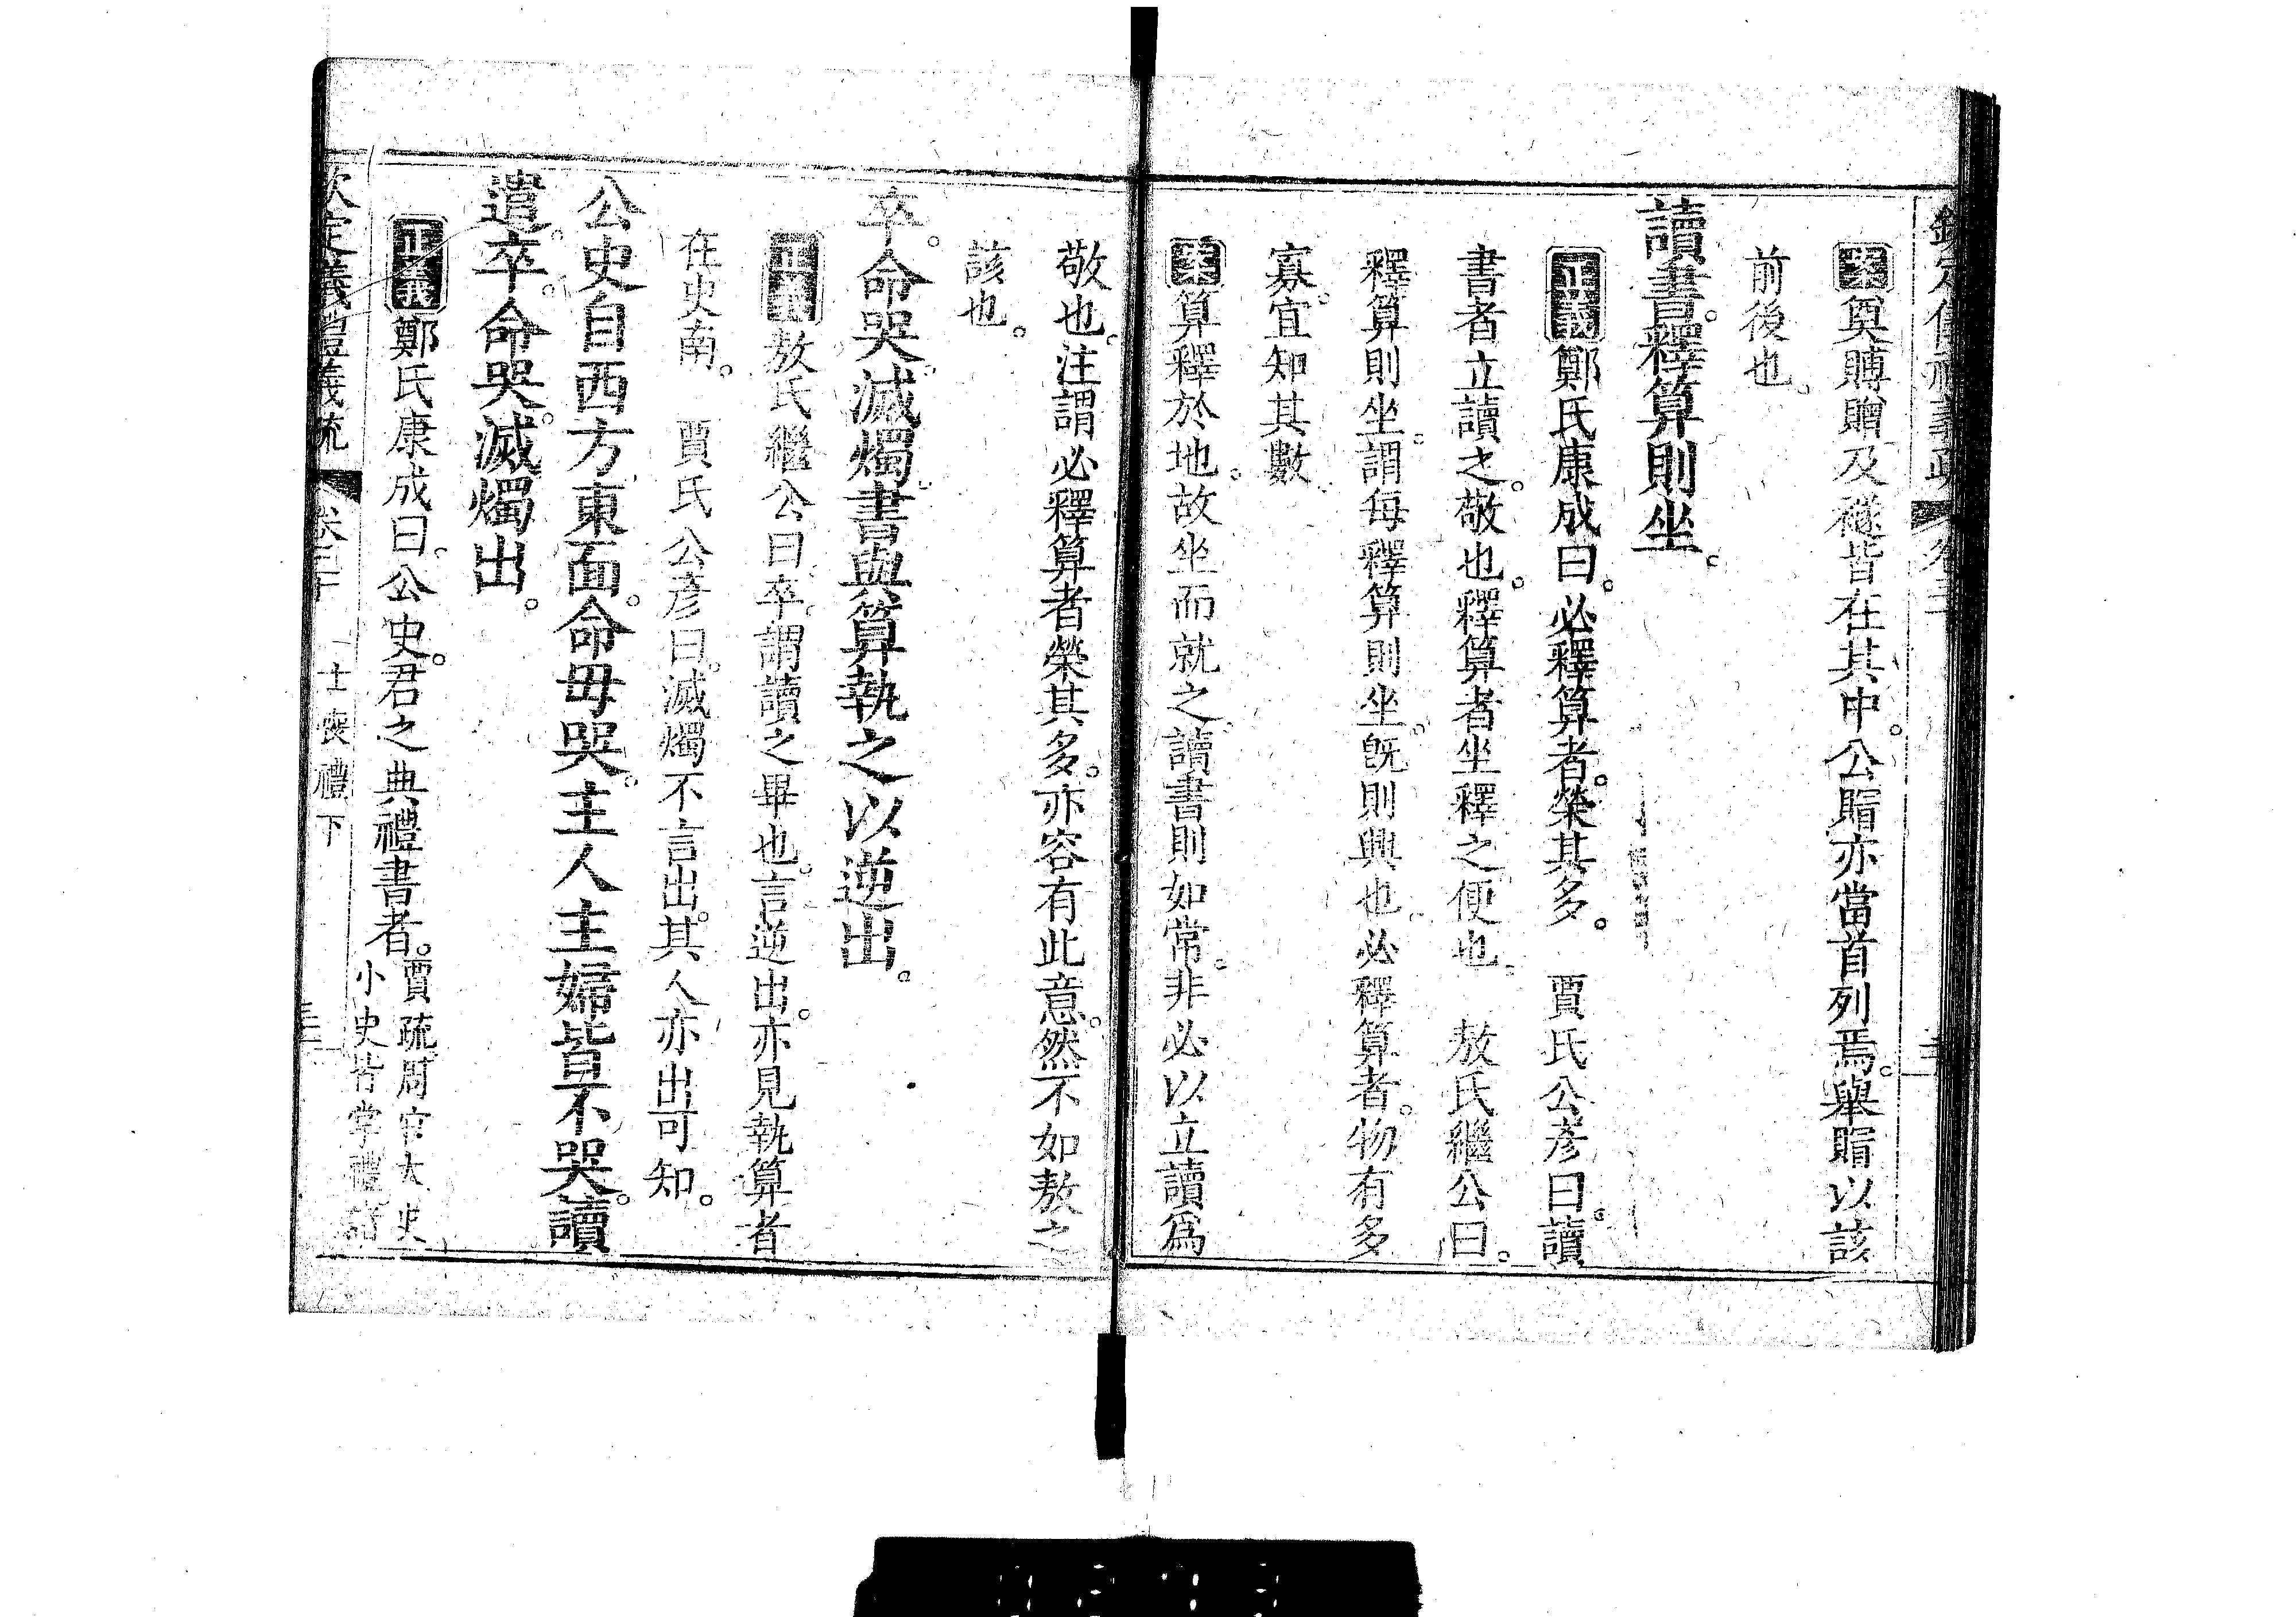 案奠賻贈及襚皆在其中。公賵亦當首列焉。舉賵以該
前後也。
讀書。釋算則坐。
正義鄭氏康成曰。必釋算者。榮其多。　賈氏公彥曰。讀
書者立讀之。敬也。釋算者坐釋之。便也。　敖氏繼公曰。
釋算則坐。謂每釋算則坐。旣則興也。必釋算者。物有多
寡。宜知其數。
案算釋於地。故坐而就之。讀書則如常。非必以立讀爲
敬也。注謂必釋算者榮其多。亦容有此意。然不如敖之
該也。
卒。命哭。滅燭。書與算執之以逆出。
正義敖氏繼公曰。卒。謂讀之畢也。言逆出。亦見執算者
在史南。　賈氏公彥曰。滅燭不言出。其人亦出可知。
公史自西方東面。命毋哭。主人主婦皆不哭。讀
遣卒。命哭。滅燭出。
正義鄭氏康成曰。公史。君之典禮書者。賈疏周官大史
小史皆掌禮
欽定義禮義疏　卷三十　士喪禮下